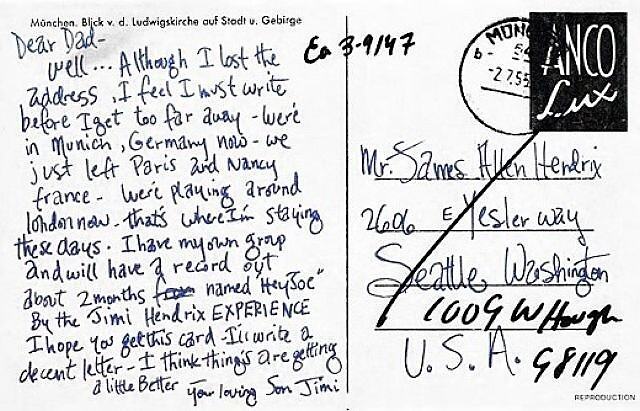 München. Blick v. d. Ludwigskirche auf Stadt u. Gebirge
Dear Dad-
well... Although I lost the
address, I feel I must write
before I get too far away - we're
in Munich, Germany now - we
just left Paris and Nancy
france - we're playing around
london now. thats where I'm staying
these days. I have my own group
and will have a record out
about 2 months named "Hey Joe"
By the Jimi Hendrix EXPERIENCE
I hope you get this card - I'll write a
decent letter - I think things are getting
a little Better
your loving Son Jimi
3-9/47
ANCO
Lux
Mr. James Allen Hendrix
2606 E Yesler way
Seattle, Washington
1009 W
U.S.A. 98119
REPRODUCTION